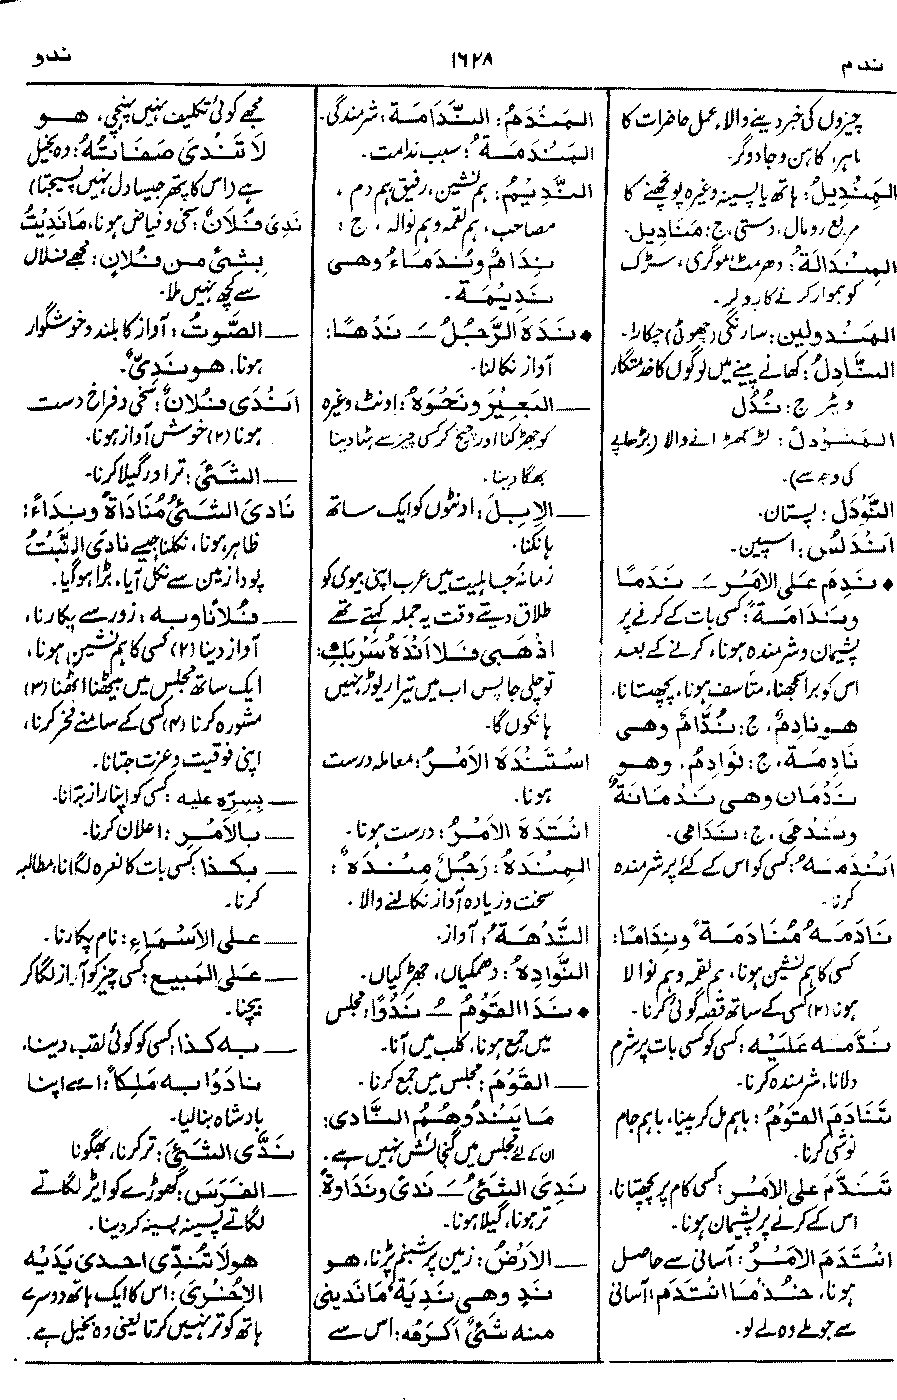 ندم
١٦٢٨
ندو
چیزوں کی خبر دینے والا، عمل حاضرات کا
ماہر، کاہن و جادوگر۔
المِنْدِيلُ: ہاتھ یا پسینہ وغیرہ پونچھنے کا
مربع رومال، دستی، ج: مَنَادِيل۔
المِنْدَالَةُ: دھرمٹ، موگری، سڑک
کو ہموار کرنے کا رولر۔
المندولین: سارنگی (چھوٹی) چکارا۔
النَّادِلُ: کھانے پینے میں لوگوں کا خدمتگار
ویٹر ج: نُدُل
المُنَوْدِلُ: لڑکھڑانے والا (بڑھاپے
کی وجہ سے)۔
النَّوْدَل: پستان۔
اَنْدَلُس: اسپین۔
• نَدِمَ عَلَى الاَمْرِ ــَـ نَدَمًا
ونَدَامَةً: کسی بات کے کرنے پر
پشیمان و شرمندہ ہونا، کرنے کے بعد
اس کو برا سمجھنا، متأسف ہونا، پچھتانا،
هو نادِمٌ، ج: نُدَّامٌ وهى
نَادِمة، ج: نَوادِمُ، وهو
نَدْمَان وهى نَدْمَانَةٌ
ونَدْمَى، ج: نَدَامى۔
اَنْدَمَهُ: کسی کو اس کے کئے پر شرمندہ
کرنا۔
نَادَمَهُ مُنَادَمَةً وَنِدَامًا:
کسی کا ہم نشین ہونا، ہم لقمہ و ہم نوالا
ہونا (٢) کسی کے ساتھ قصہ گوئی کرنا۔
نَدَّمَه عَلَيْه: کسی کو کسی بات پر شرم
دلانا، شرمندہ کرنا۔
تَنَادَمَ القَوْمُ: باہم مل کر پینا، باہم جام
نوشی کرنا۔
تَنَدَّمَ على الاَمْرِ: کسی کام پر پچھتانا،
اس کے کرنے پر پشیمان ہونا۔
انْتَدَمَ الاَمْرُ: آسانی سے حاصل
ہونا، خُذْ مَا انْتَدَمَ: آسانی
سے جو ملے وہ لے لو۔
المَنْدَمُ: النَّدَامَة: شرمندگی۔
المَنْدَمَةُ: سبب ندامت۔
النَّدِيمُ: ہم نشین، رفیق، ہم دم،
مصاحب، ہم لقمہ و ہم نوالہ، ج:
نِدَامٌ ونُدَمَاءُ وهى
نَدِيْمَة۔
• نَدَهَ الرَّجُلُ ــَـ نَدْهًا:
آواز نکالنا۔
ــــ البَعِيْرَ ونَحْوَهُ: اونٹ وغیرہ
کو جھڑکنا اور چیخ کر کسی چیز سے ہٹا دینا
بھگا دینا۔
ــــ الاِبِلَ: اونٹوں کو ایک ساتھ
ہانکنا۔
زمانۂ جاہلیت میں عرب اپنی بیوی کو
طلاق دیتے وقت یہ جملہ کہتے تھے
اذْهَبِى فَلا اَنْدَهُ سَرْبَكِ:
تو چلی جا پس اب میں تیرا ریوڑ نہیں
ہانکوں گا۔
اسْتَنْدَهَ الاَمْرُ: معاملہ درست
ہونا۔
انْتَدَهَ الاَمْرُ: درست ہونا۔
المِنْدَهُ: رَجُلٌ مِنْدَهٌ:
سخت و زیادہ آواز نکالنے والا۔
النَّدْهَةُ: آواز۔
النَّوادِهُ: دھمکیاں، جھڑکیاں۔
• نَدَا القَوْمُ ــُـ نَدْوًا: مجلس
میں جمع ہونا، کلب میں آنا۔
ــــ القَوْمَ: مجلس میں جمع کرنا۔
مَا يَنْدُوهُمُ النَّادى:
ان کے لیے مجلس میں گنجائش نہیں ہے۔
نَدِىَ الشَّىْءُ ــَـ نَدًى ونَدَاوةً:
تر ہونا، گیلا ہونا۔
ــــ الاَرْضُ: زمین پر شبنم پڑنا، هو
نَدٍ وهى نَدِيَةٌ مَا نَدِيَنِى
منه شَىْءٌ اَكْرَهُه: اس سے
مجھے کوئی تکلیف نہیں پہنچی، هو
لاَ تَنْدَى صَفَاتُهُ: وہ بخیل
ہے (اس کا پتھر جیسا دل نہیں پسیجتا)
نَدِىَ فُلانٌ: سخی و فیاض ہونا، مَا نَدِيْتُ
بِشَىْءٍ من فُلانٍ: مجھے فلاں
سے کچھ نہیں ملا۔
ــــ الصَّوتُ: آواز کا بلند و خوشگوار
ہونا، هو نَدِىٌّ۔
اَنْدَى فُلانٌ: سخی و فراخ دست
ہونا (٢) خوش آواز ہونا۔
ــــ الشَّىْءَ: تر اور گیلا کرنا۔
نَادىَ الشَّىْءُ مُنَاداةً ونِدَاءً:
ظاہر ہونا، نکلنا جیسے نَادىَ النَّبْتُ
پودا زمین سے نکل آیا، بڑا ہو گیا۔
ــــ فُلانًا وبه: زور سے پکارنا،
آواز دینا (٢) کسی کا ہم نشین ہونا،
ایک ساتھ مجلس میں بیٹھنا اٹھنا (٣)
مشورہ کرنا (٤) کسی کے سامنے فخر کرنا،
اپنی فوقیت و عزت جتانا۔
ــــ بِسِرِّه عليه: کسی کو اپنا راز بتانا۔
ــــ بالاَمْرِ: اعلان کرنا۔
ــــ بكذا: کسی بات کا نعرہ لگانا، مطالبہ
کرنا۔
ــــ على الاَسْمَاءِ: نام پکارنا۔
ــــ عَلَى المَبِيع: کسی چیز کو آواز لگا کر
بیچنا۔
ــــ به كَذا: کسی کو کوئی لقب دینا،
نَادَوْا به مَلِكاً: اسے اپنا
بادشاہ بنا لیا۔
نَدَّى الشَّىْءَ: تر کرنا، بھگونا
ــــ الفَرَسَ: گھوڑے کو ایڑ لگاتے
لگاتے پسینہ پسینہ کر دینا۔
هو لا تُنَدِّى احدى يَدَيْه
الاُخْرَى: اس کا ایک ہاتھ دوسرے
ہاتھ کو تر نہیں کرتا یعنی وہ بخیل ہے۔